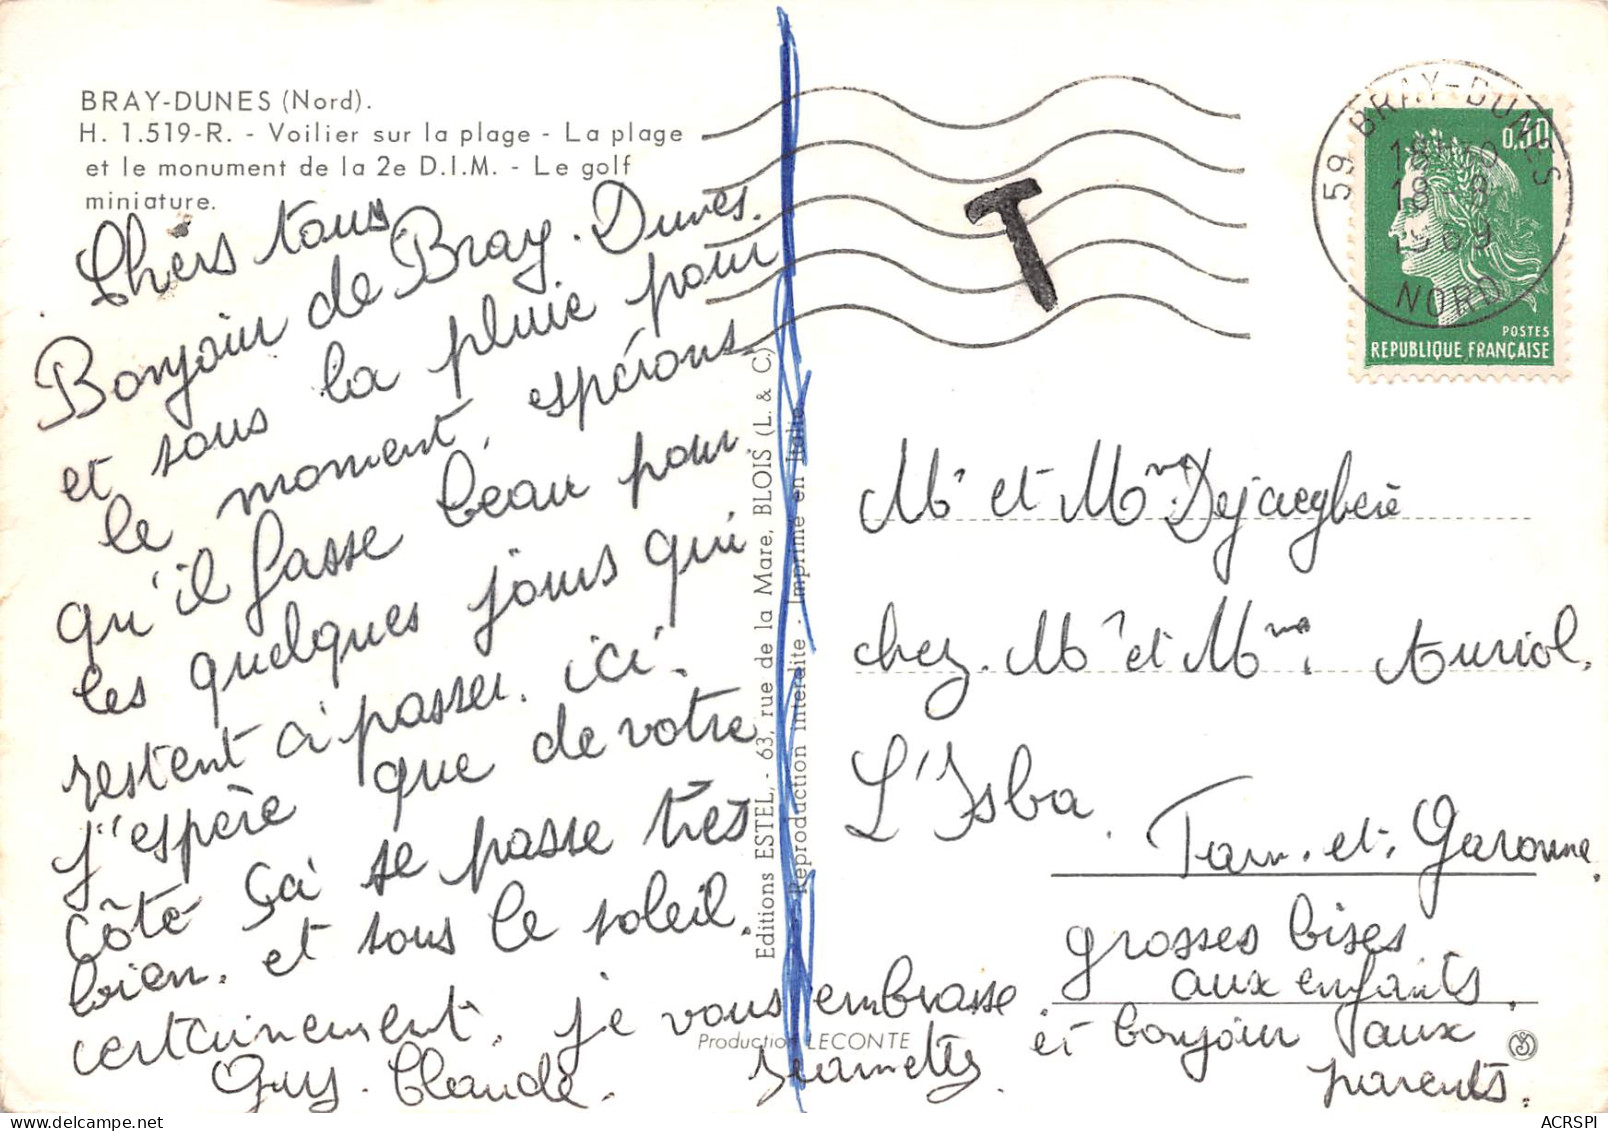 BRAY-DUNES (Nord).
H. 1.519-R. - Voilier sur la plage - La plage
et le monument de la 2e D.I.M. - Le golf
miniature.
Chers tous
Bonjour de Bray-Dunes.
et sous la pluie pour
le moment, espérons
qu'il fasse beau pour
les quelques jours qui
restent à passer ici.
j'espère que de votre
côté ça se passe très
bien. et sous le soleil.
certainement. je vous embrasse
Guy. Claude. Jeannette
Editions ESTEL, - 63, rue de la Mare, BLOIS (L. & C)
Reproduction interdite - Imprimé en Italie
Production LECONTE
T
59 BRAY-DUNES
18H30
18-8
1969
NORD
0,30
POSTES
REPUBLIQUE FRANÇAISE
Mr et Mme Dejaegbere
chez. Mr et Mme Auriol.
L'Isba.
Tarn.et.Garonne.
grosses bises
aux enfants.
et bonjour aux
parents.
ACRSPI